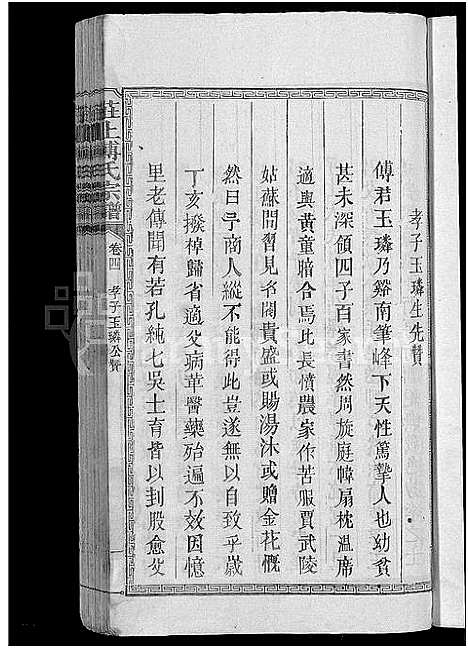 孝子玉璘生先贊
傅君玉璘乃谿南筆峰下天性篤摯人也幼貧
甚未深領四子百家書然周旋庭幃扇枕溫席
適與黃童暗合焉此長憤農家作苦服賈武陵
姑蘇間習見名閥貴盛或賜湯沐或贈金花慨
然曰予商人縱不能得此豈遂無以自致乎歲
丁亥撥棹歸省適父病革醫藥殆遍不效因憶
里老傳聞有若孔純七吳士育皆以刲股愈父
莊上傅氏宗譜
卷四
孝子玉璘公贊